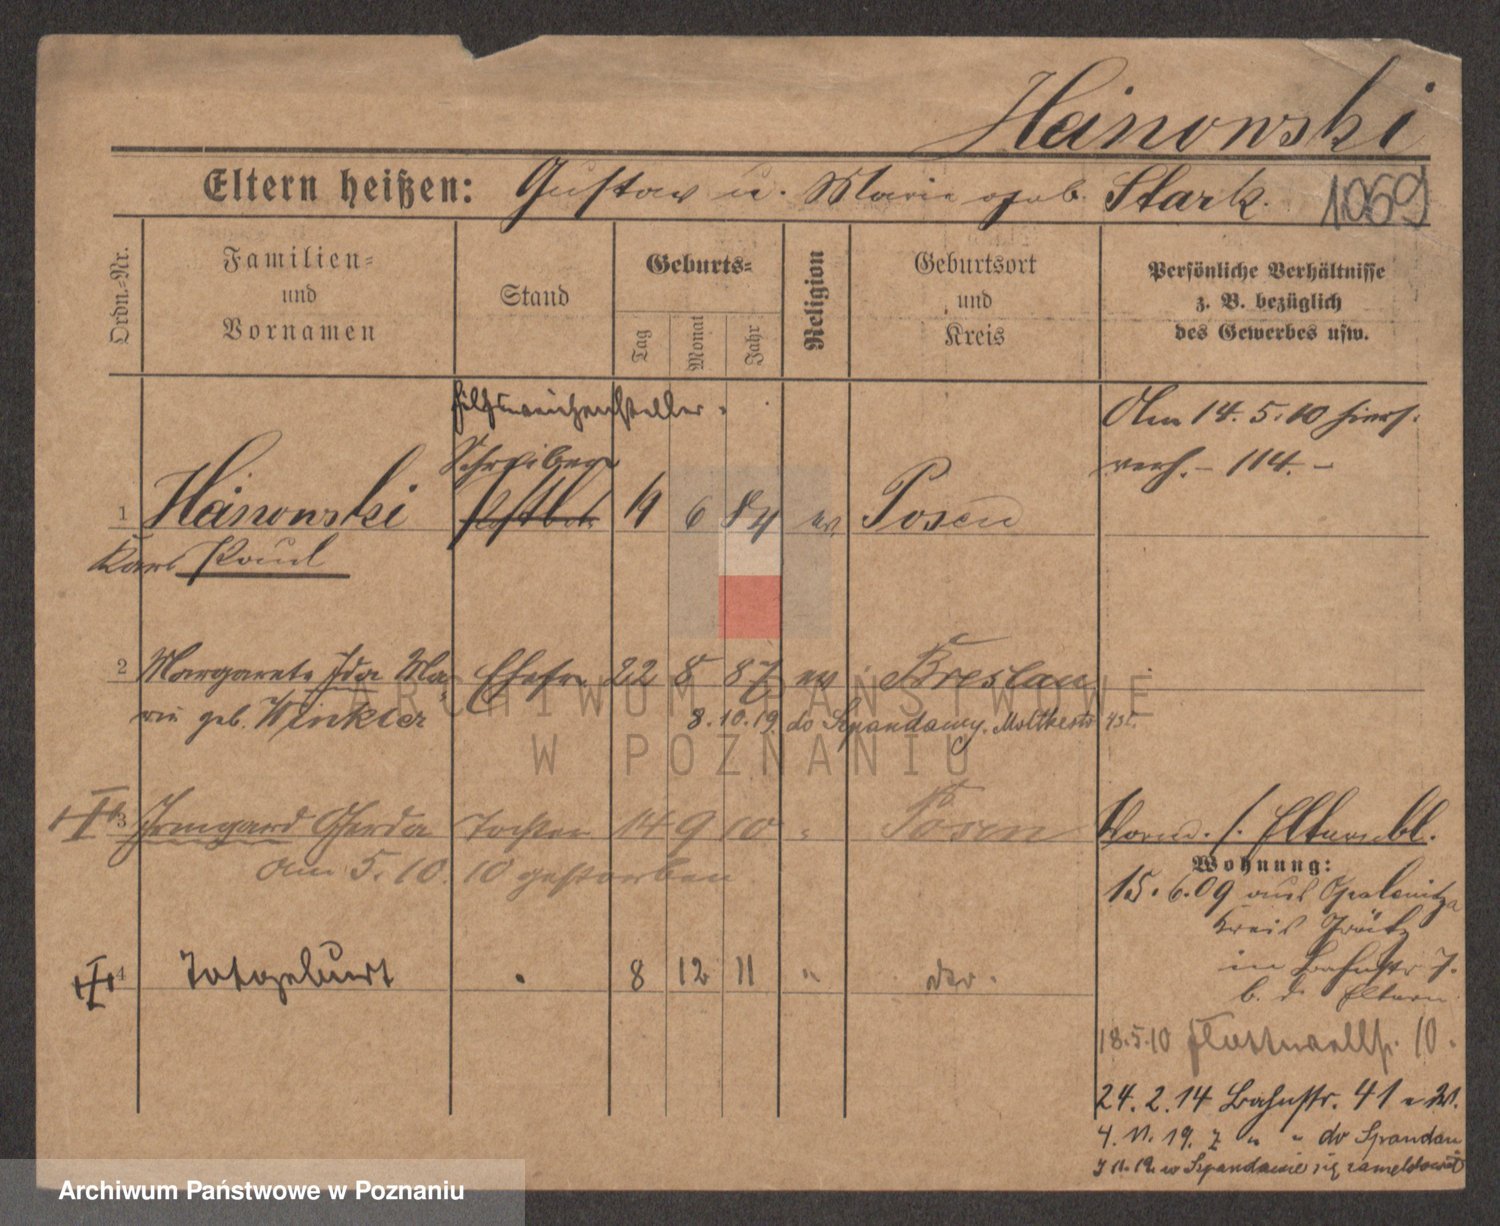 Heinowski
Eltern heißen: Gustav u. Marie geb. Stark. 1069
Ordn.-Nr.
Familien-
und
Vornamen
Stand
Geburts-
Tag
Monat
Jahr
Religion
Geburtsort
und
Kreis
Persönliche Verhältnisse
z. B. bezüglich
des Gewerbes usw.
Hilfsweichensteller
Schreiber
Am 14. 5. 10 hiers.
verh. – 114. –
1 Heinowski 6 84 ev Posen
Karl Paul
2 Margarete Ida Ma- Ehefr 22 8 87 ev Breslau
rie geb. Winkler
8.10.19. do Szpandawy. Moltkestr 43 I.
3 Irmgard Gerda Tochter 14 9 10 " Posen
am 5. 10. 10 gestorben
Vorm. s. Elternbl.
Wohnung:
15. 6. 09 aus Opalenitza
Kreis Grätz
in Bahnstr 7.
b. d. Eltern
4 Totgeburt 8 12 11 "
18.5.10 Flottwellstr. 10.
24. 2. 14 Bahnstr. 41 e W.
4. 11. 19. z " " do Spandau
w Szpandawie się zameldował
ARCHIWUM PAŃSTWOWE
W POZNANIU
Archiwum Państwowe w Poznaniu